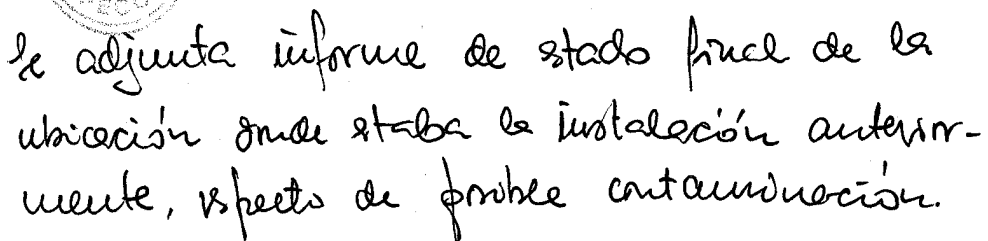 Se adjunta informe de estado final de la
ubicación donde estaba la instalación anterior-
mente, respecto de posible contaminación.